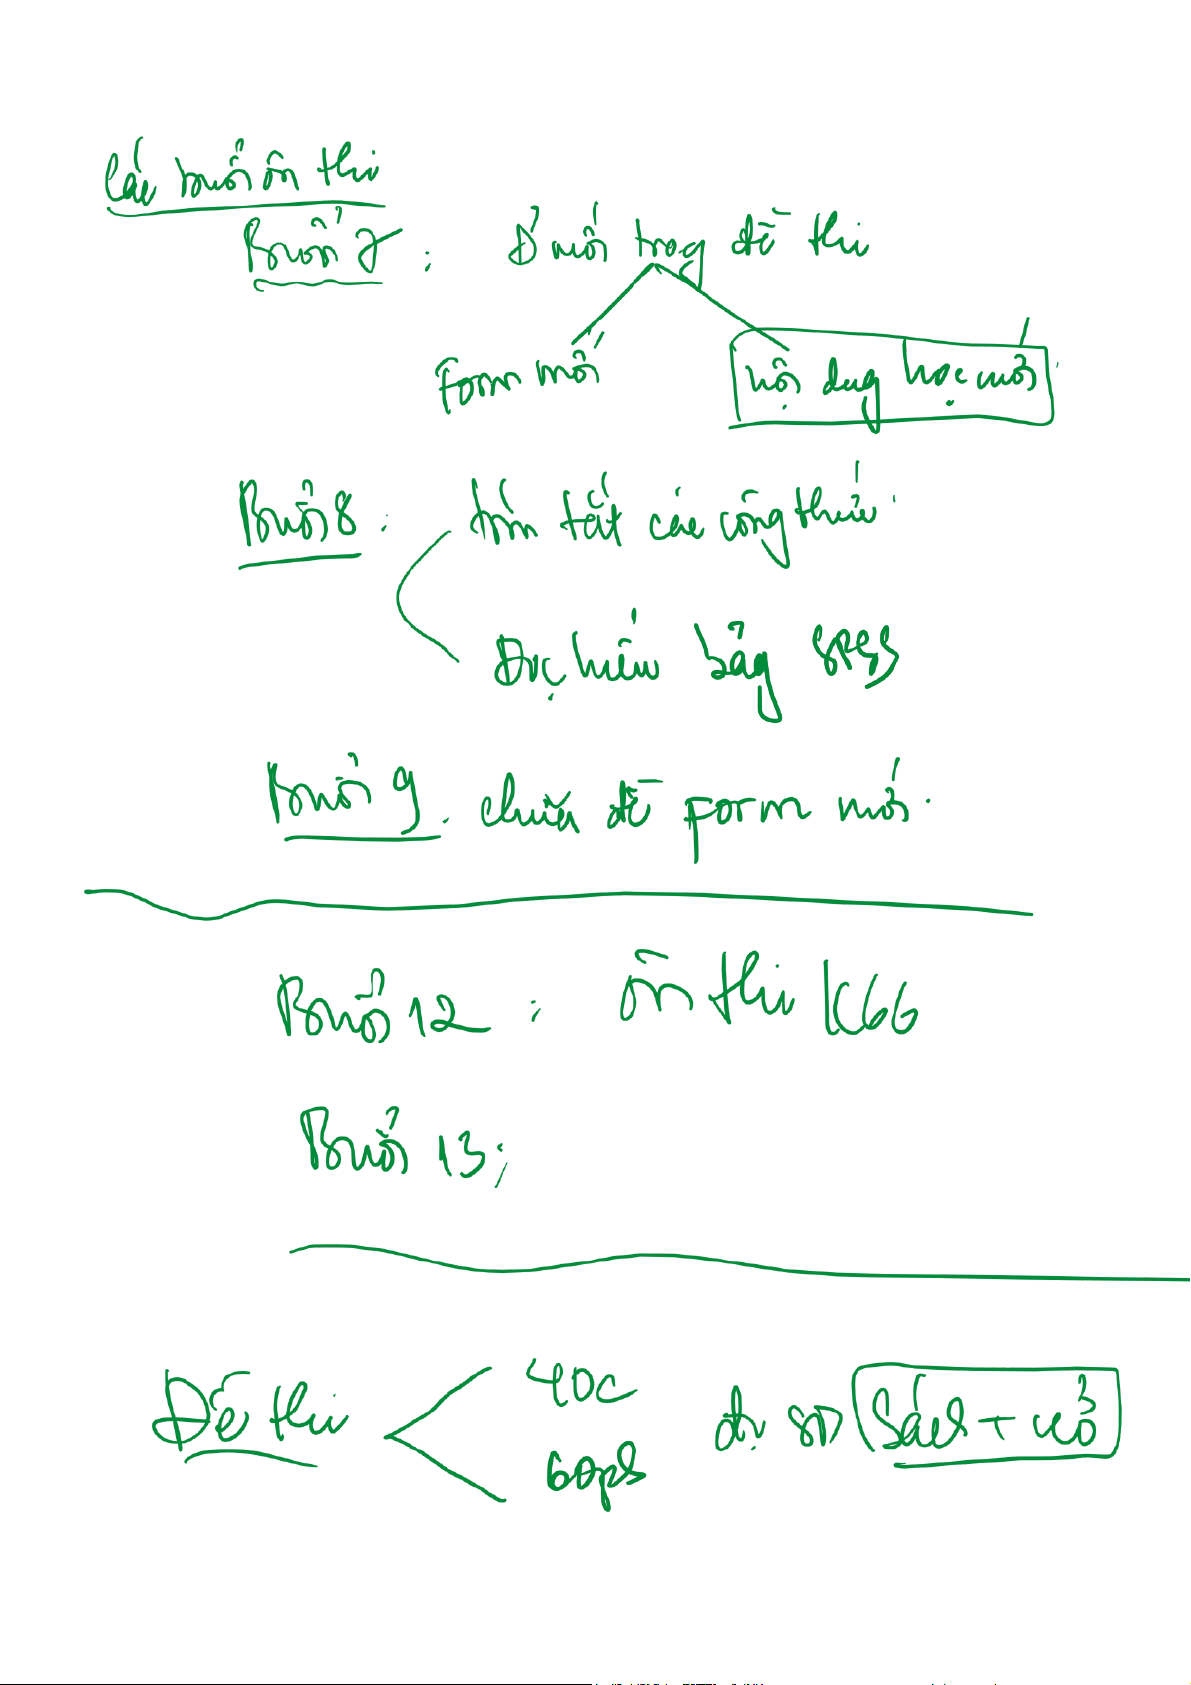 Các buổi ôn thi
Buổi 7: Đ' mới trog đề thi
Form mới
nội dug học mới
Buổi 8: tóm tắt các công thức.
Đọc hiểu bảg SPSS
Buổi 9. chữa đề form mới.
Buổi 12: ôn thi K66
Buổi 13:
Đề thi
40c
60ph
đc SD Sách + vở